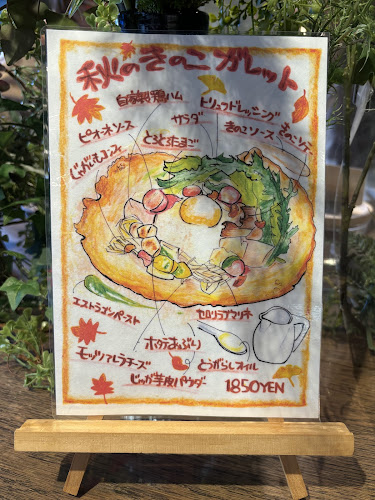 秋のきのこガレット
自家製鴨ハム
トリュフドレッシング
ピオーネソース
サラダ
きのこソース
きのこソテー
じゃがいもコンフィ
とろとろたまご
エストラゴンペースト
セロリラブマッシュ
ホタテあぶり
モッツァレラチーズ
とうがらしオイル
じゃが芋皮パウダー
1850YEN